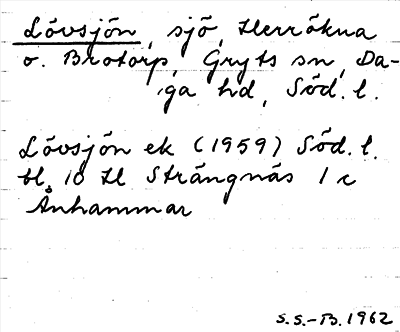 Lövsjön, sjö, Herrökna
o. Brotorp, Gryts sn, Da-
ga hd, Söd. l.
Lövsjön ek (1959) Söd. l.
bl. 10 H Strängnäs 1 c
Änhammar
S.S.-B. 1962